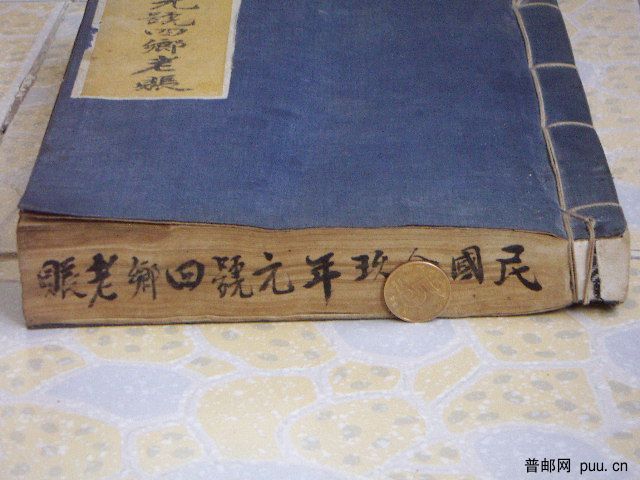 元號四鄉老賬
民國玖年元號四鄉老賬
普邮网 puu.cn